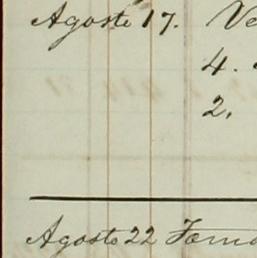 Agosto 17. Ve
4.
2.
Agosto 22